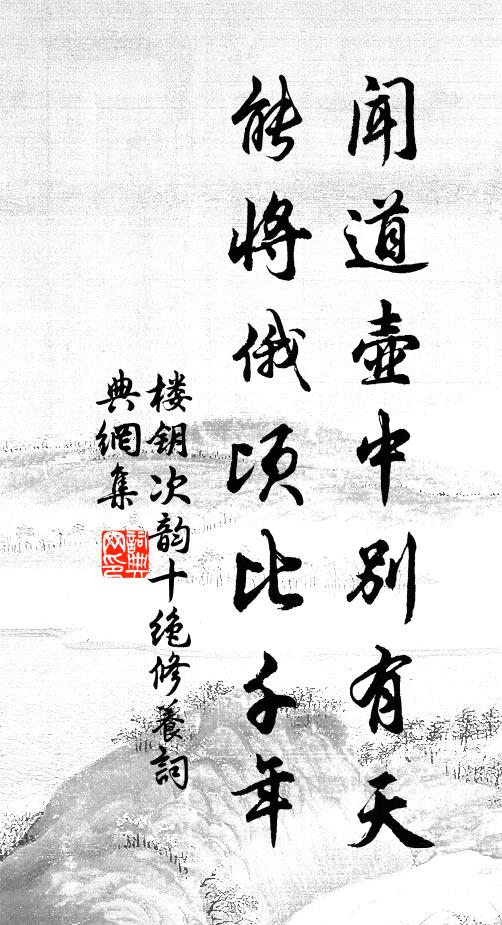 闻道壶中别有天
能将俄顷比千年
楼钥次韵十绝修养词
典網集
詞典網印